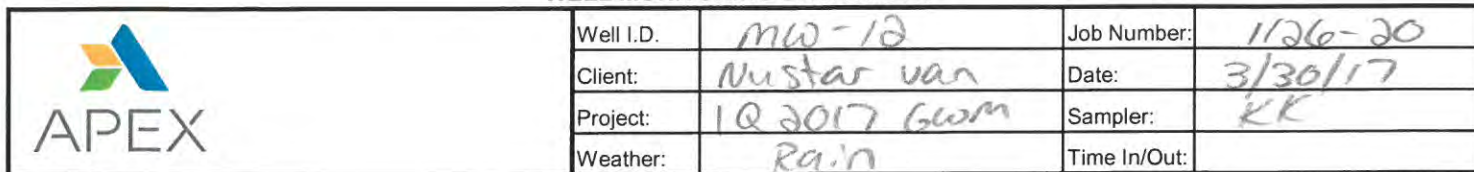 APEX
Well I.D. MW-12 Job Number: 1126-20
Client: Nustar van Date: 3/30/17
Project: 1Q 2017 GWM Sampler: KK
Weather: Rain Time In/Out: